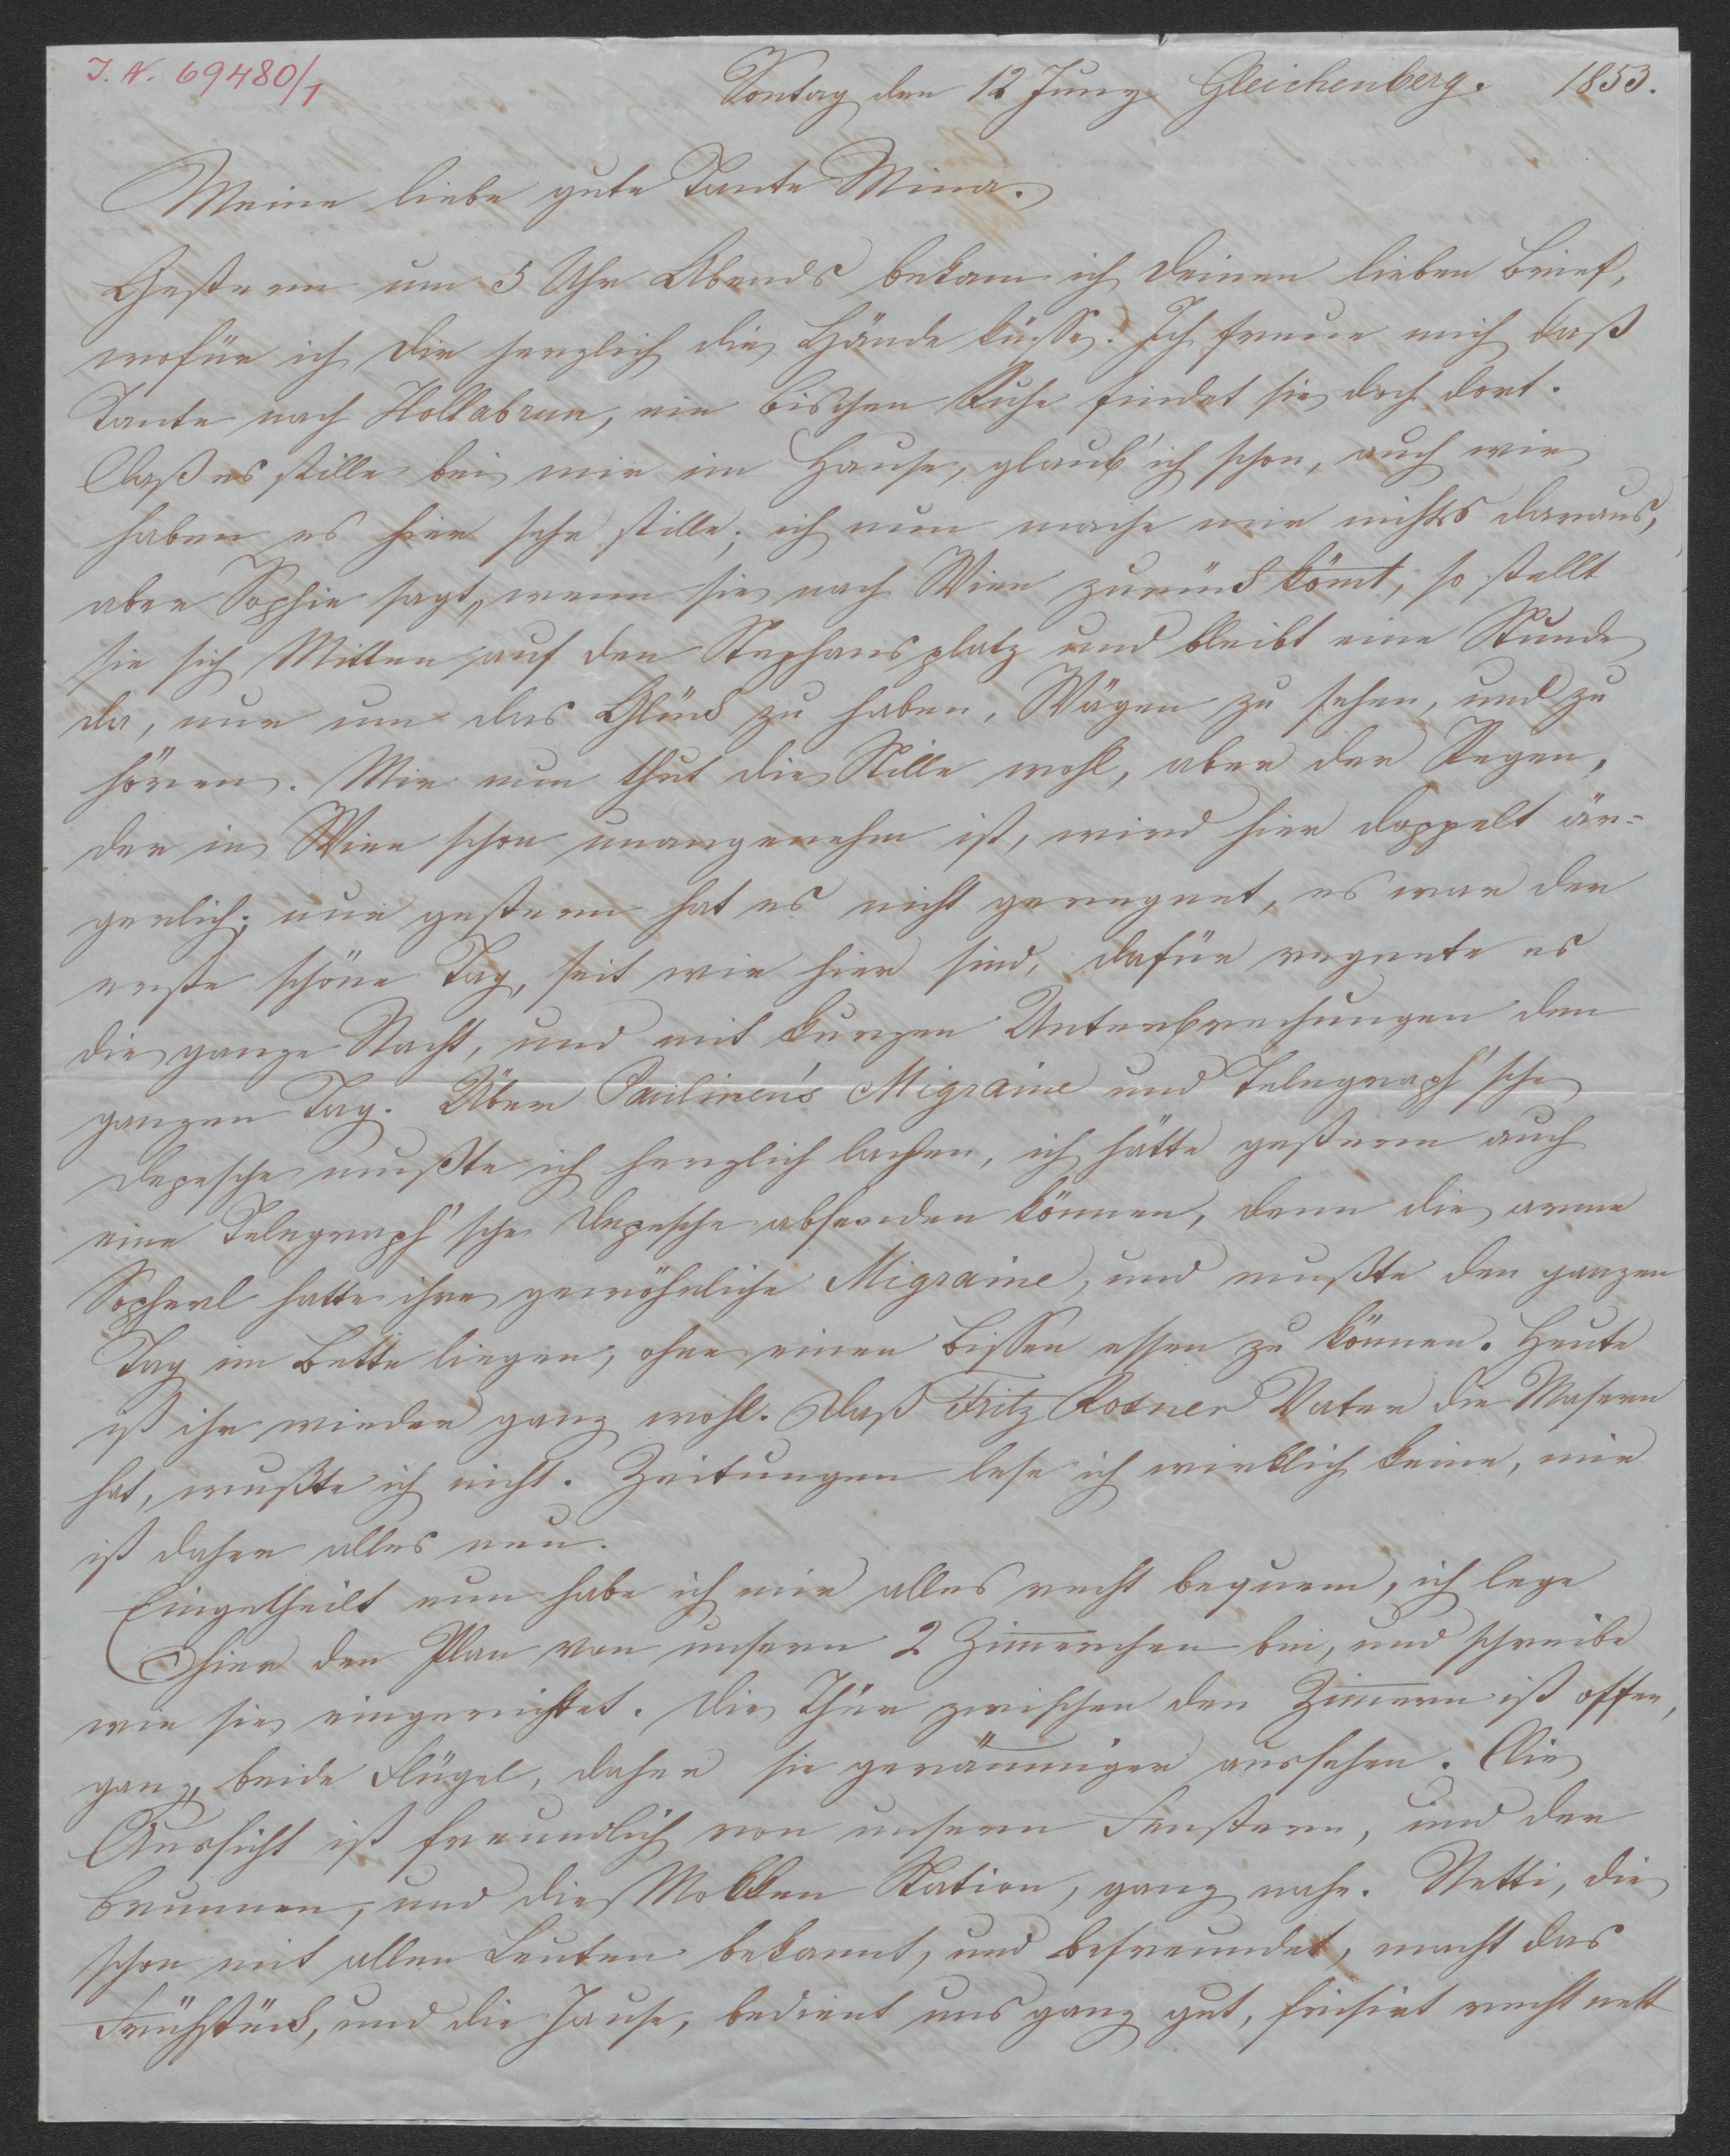 J. N. 69480/1
Sontag den 12 Juny Gleichenberg. 1853.
Meine liebe gute Tante Mina.
Gestern um 5 Uhr Abends bekam ich deinen lieben Brief,
wofür ich dir herzlich die Hände küsse. Ich freue mich daß
Tante nach Hollabrun, ein bischen Ruhe findet sie doch dort.
Daß es stille bei mir im Hause, glaub' ich schon, auch wir
haben es hier sehr stille; ich nun mache mir nichts daraus,
aber Sophie sagt, wenn sie nach Wien zurück kömt, so stellt
sie sich Mitten auf den Stephansplatz und bleibt eine Stunde
da, nur um das Glück zu haben, Wägen zu sehen, und zu
hören. Mir nun thut die Stille wohl, aber der Regen,
der in Wien schon unangenehm ist, wird hier doppelt är-
gerlich; nur gestern hat es nicht geregnet, es war der
erste schöne Tag, seit wir hier sind, dafür regnete es
die ganze Nacht, und mit kurzen Unterbrechungen den
ganzen Tag. Über Paulinen's Migraine und Telegraph'sche
Depesche mußte ich herzlich lachen, ich hätte gestern auch
eine Telegraph'sche Depesche absenden können, denn die arme
Sopherl hatte ihre gewöhnliche Migraine, und mußte den ganzen
Tag im Bette liegen, ohne einen Bissen essen zu können. Heute
ist ihr wieder ganz wohl. Daß Fritz Vater die Masern
hat, wußte ich nicht. Zeitungen lese ich wirklich keine, mir
ist daher alles neu.
Eingetheilt nun habe ich mir alles recht bequem, ich lege
hier den Plan von unsern 2 Zimerchen bei, und schreibe
wie sie eingerichtet. Die Thür zwischen den Zimern ist offen,
ganz, beide Flügel, daher sie geräumiger aussehen. Die
Aussicht ist freundlich von unsern Fenstern, und der
Brunnen, und die Molken Station, ganz nahe. Netti, die
schon mit allen Leuten bekannt, und befreundet, macht das
Frühstück, und die Jause, bedient uns ganz gut, frisirt recht nett